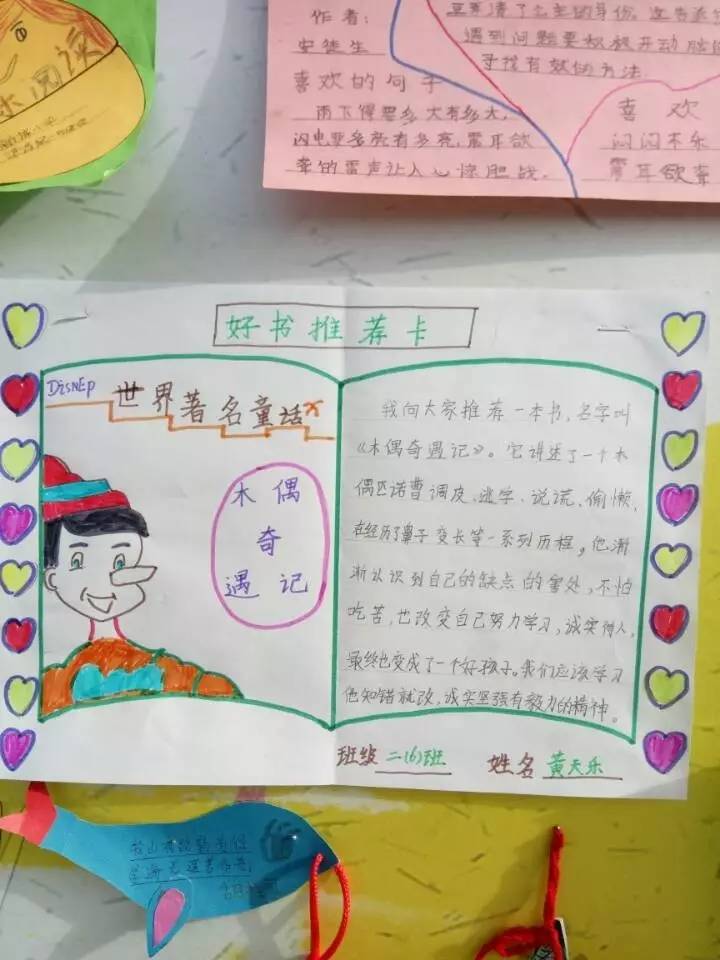 乐阅读
作者：
安徒生
喜欢的句子
雨下得要多大有多大，
闪电要多亮有多亮，震耳欲
聋的雷声让人心惊胆战。
遇到问题要积极开动脑
寻找有效的方法
喜欢
闷闷不乐
震耳欲聋
好书推荐卡
DisNEp
世界著名童话
木偶
奇
遇记
我向大家推荐一本书，名字叫
《木偶奇遇记》。它讲述了一个木
偶匹诺曹调皮、逃学、说谎、偷懒，
在经历了鼻子变长等一系列历程，他渐
渐认识到自己的缺点的害处，不怕
吃苦，也改变自己努力学习，诚实待人，
最终也变成了一个好孩子。我们应该学习
他知错就改，诚实坚强有毅力的精神。
班级 二(6)班 姓名 黄天乐